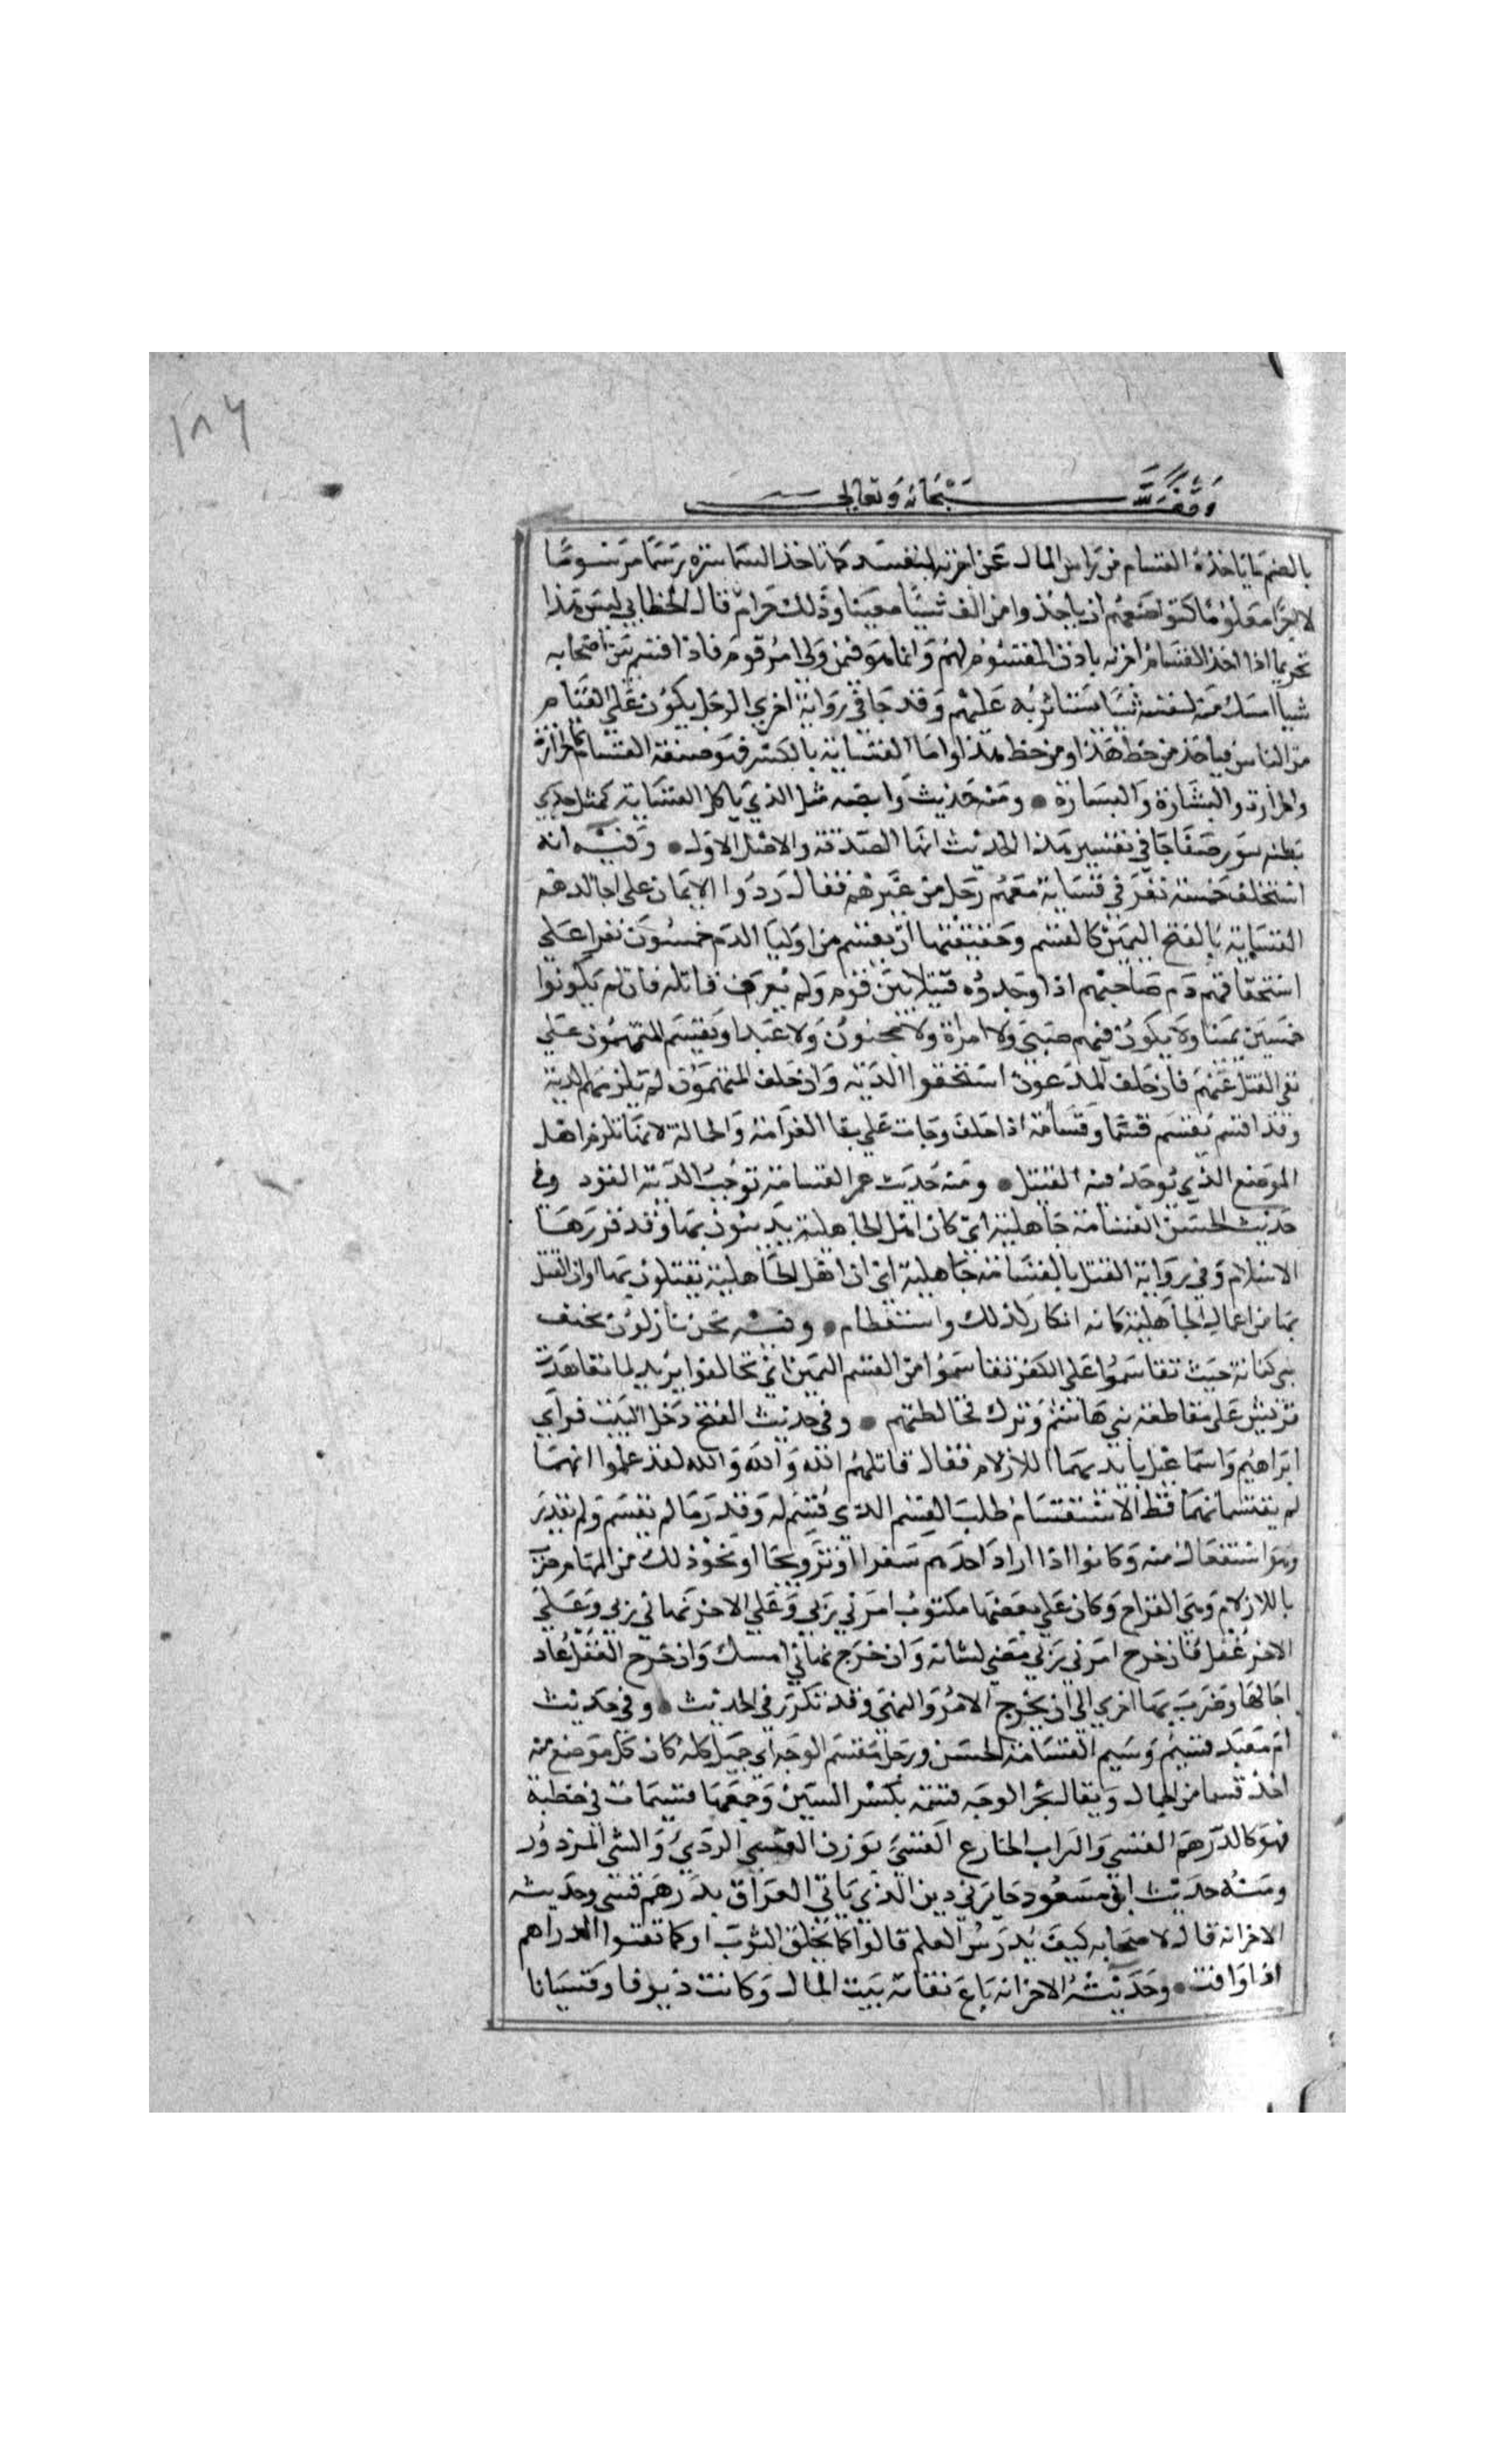 ١٨٦
وقف لله سبحانه وتعالى
بالضم ما ياخذه القسام من راس المال عن اجرته لنفسه كما تاخذ السماسرة رسما مرسوما
لا اجرا معلوما كتواضعهم ان ياخذوا من الف شيئا معينا وذلك حرام قال الخطابي ليس هذا
تحريما اذا اخذ القسام اجرته باذن المقسوم لهم وانما هو فيمن ولي امر قوم فاذا اقسم بين اصحابه
شيا امسك منه لنفسه شيئا يستاثر به عليهم وقد جا في رواية اخري الرجل يكون على الفئام
من الناس فياخذ من حظ هذا ومن حظ هذا واما القسامة بالكسر فهو صنعة القسام كالجزارة
والجزارة والبشارة والبشارة ومنه حديث وابصه مثل الذي ياكل القسامة كمثل جدي
بطنه مملو رضفا جا في تفسير هذا الحديث انها الصدقة والاصل الاول وفيه انه
استحلف خمسة نفر في قسامة معهم رجل من غيرهم فقال ردوا الايمان على اجالدهم
القسامة بالفتح اليمين كالقسم وحقيقتها ان يقسم من اوليا الدم خمسون نفرا على
استحقاقهم دم صاحبهم اذا وجدوه قتيلا بين قوم ولم يعرف قاتله فان لم يكونوا
خمسين يمينا ولا يكون فيهم صبي ولا امراة ولا مجنون ولا عبد او يقسم المتهمون على
نفي القتل عنهم فان حلف المدعون استحقوا الدية وان حلف المتهمون لم يلزمهم الدية
وقد اقسم يقسم قسما وقسامة اذا حلف وجات على بنا الغرامة والحمالة لانها تلزم اهل
الموضع الذي يوجد فيه القتيل ومنه حديث عمر القسامة توجب الدية القود وفي
حديث الحسن القسامة جاهلية اي كان اهل الجاهلية يدينون بها وقد قررها
الاسلام وفي رواية القتل بالقسامة جاهلية اي ان اهل الجاهلية يقتلون بها او ان القتل
بها من اعمال الجاهلية كانه انكار لذلك واستعظام وفيه نحن نازلون بخيف
بني كنانة حيث تقاسموا على الكفر تقاسموا من القسم اليمين اي تحالفوا يريد لما تعاهدت
قريش على مقاطعة بني هاشم وترك مخالطتهم وفي حديث الفتح دخل البيت فراي
ابراهيم واسماعيل بايديهما الازلام فقال قاتلهم الله والله والله لقد علموا انهما
لم يقتسما بهما قط الاستقسام طلب القسم الذي قسم له وقدر مما لم يقسم ولم يقدر
وهو استفعال منه وكانوا اذا اراد احدهم سفرا او تزويجا او نحو ذلك من المهام ضرب
باللازلام وهي القداح وكان على بعضها مكتوب امرني ربي وعلي الاخر نهاني ربي وعلي
الاخر غفل فان خرج امرني ربي مضي لشانه وان خرج نهاني امسك وان خرج الغفل عاد
اجالها وضرب بها اخري الى ان يخرج الامر والنهي وقد تكرر في الحديث وفي حديث
ام معبد قسيم وسيم القسامة الحسن ورجل مقسم الوجه اي جميل كله كان كل موضع منه
اخذ قسما من الجمال ويقال لحر الوجه قسمة بكسر السين وجمعها قسمات في خطبة
فهو كالدرهم القسي والسراب الخادع القسي بوزن الشقي الردي والشي المرذول
ومنه حديث ابن مسعود ما يسرني دين الذي ياتي العراق بدرهم قسي وحديثه
الاخر انه قال لاصحابه كيف يدرس العلم قالوا كما يخلق الثوب او كما تقسوا الدراهم
اذا وافت وحديثه الاخر انه باع نفاية بيت المال وكانت زيوفا وقسيانا